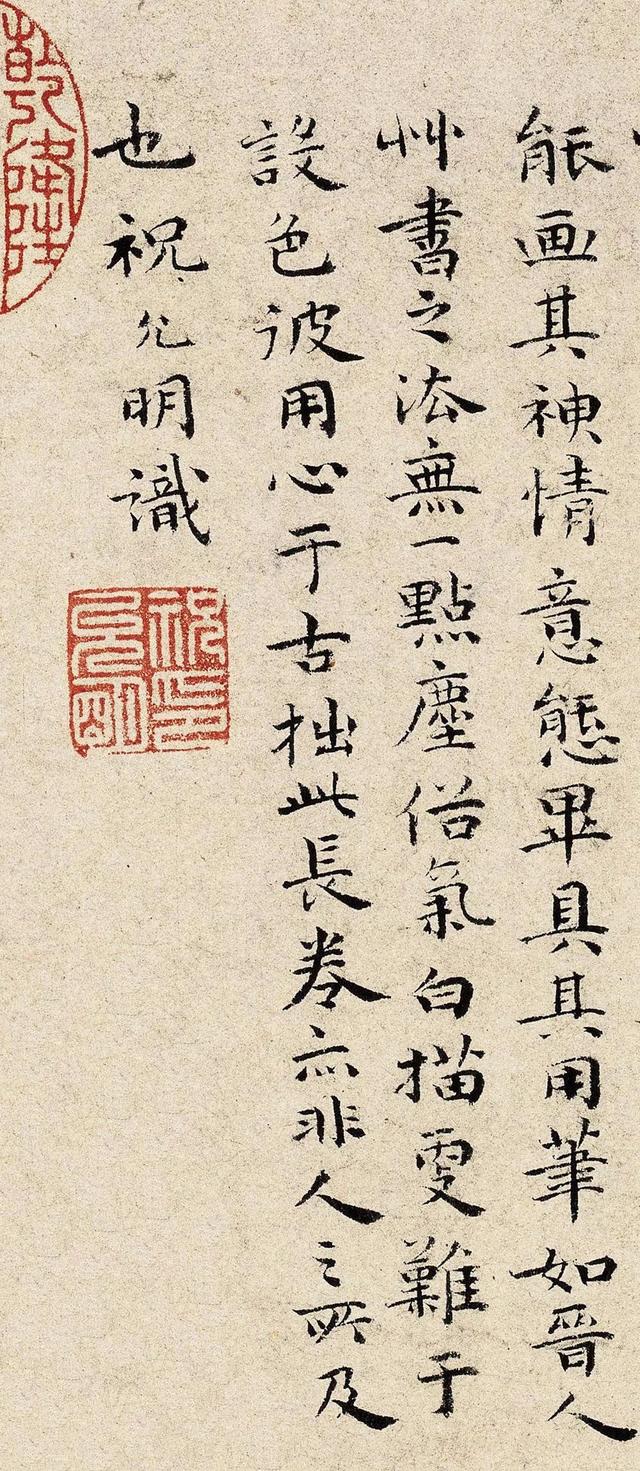 能画其神情意態畢具其用筆如晉人
艸書之法無一點塵俗氣白描更難于
設色彼用心于古拙此長卷亦非人之所及
也祝允明識
祝允明印
乾隆